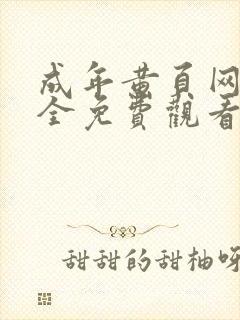 成年黄頁网
全免費觀看
甜甜的甜柚呀